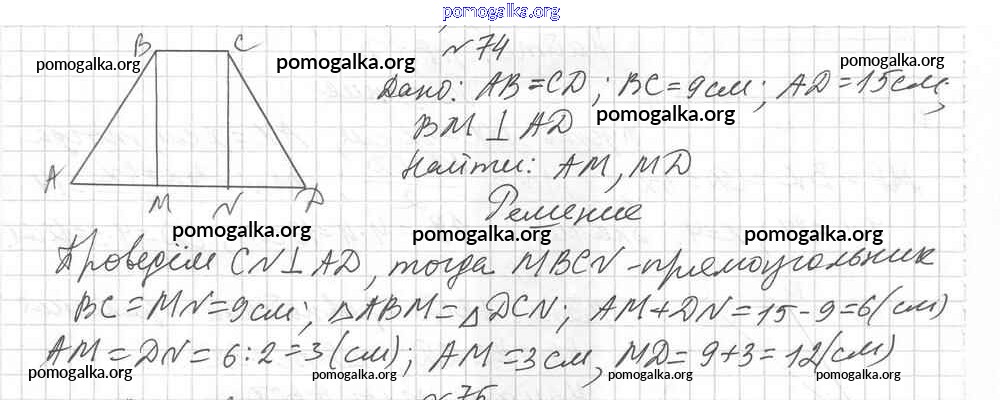 pomogalka.org
№74
B C
pomogalka.org pomogalka.org pomogalka.org
Дано: AB=CD; BC=9см; AD=15см;
pomogalka.org
BM ⊥ AD
Найти: AM, MD
A M N D
Решение
pomogalka.org pomogalka.org pomogalka.org
Проведём CN⊥AD, тогда MBCN-прямоугольник
BC=MN=9см; △ABM=△DCN; AM+DN=15-9=6(см)
AM=DN=6:2=3(см); AM=3см, MD=9+3=12(см)
pomogalka.org pomogalka.org pomogalka.org pomogalka.org
№75